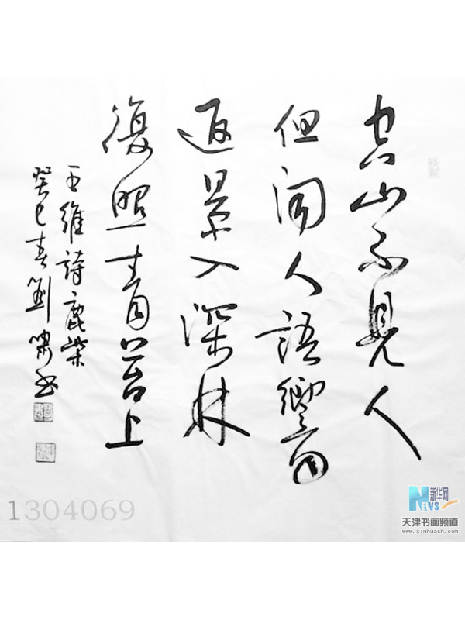 空山不見人
但聞人語響
返景入深林
復照青苔上
王維詩鹿柴
癸巳春劉
1304069
新华网
NEWS
天津书画频道